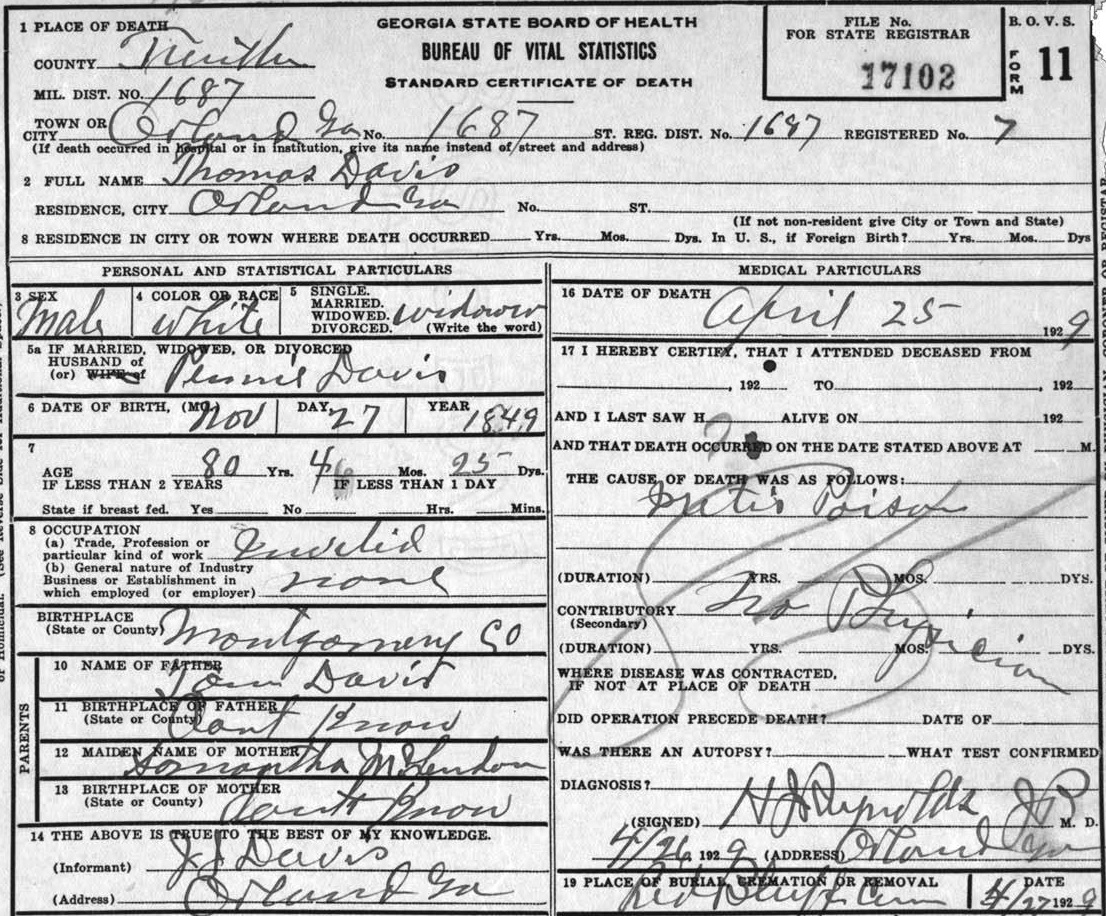 GEORGIA STATE BOARD OF HEALTH
BUREAU OF VITAL STATISTICS
STANDARD CERTIFICATE OF DEATH
FILE No.
FOR STATE REGISTRAR
17102
B. O. V. S.
FORM 11
1 PLACE OF DEATH
COUNTY
MIL. DIST. NO. 1687
TOWN OR
CITY Orland Ga No. 1687 ST. REG. DIST. No. 1687 REGISTERED No. 7
(If death occurred in hospital or in institution, give its name instead of street and address)
2 FULL NAME Thomas Davis
RESIDENCE, CITY Orland Ga No. ST.
(If not non-resident give City or Town and State)
8 RESIDENCE IN CITY OR TOWN WHERE DEATH OCCURRED Yrs. Mos. Dys. In U. S., if Foreign Birth? Yrs. Mos. Dys
PERSONAL AND STATISTICAL PARTICULARS
3 SEX
Male
4 COLOR OR RACE
White
5 SINGLE.
MARRIED.
WIDOWED.
DIVORCED.
widower
(Write the word)
5a IF MARRIED, WIDOWED, OR DIVORCED
HUSBAND of
(or) WIFE of Pennie Davis
6 DATE OF BIRTH, (MO.) Nov DAY 27 YEAR 1849
7
AGE 80 Yrs. 4 Mos. 25 Dys.
IF LESS THAN 2 YEARS IF LESS THAN 1 DAY
State if breast fed. Yes No Hrs. Mins.
8 OCCUPATION
(a) Trade, Profession or
particular kind of work Invelid
(b) General nature of Industry
Business or Establishment in
which employed (or employer) none
BIRTHPLACE
(State or County) Montgomery CO
PARENTS
10 NAME OF FATHER
Tom Davis
11 BIRTHPLACE OF FATHER
(State or County) Cant Know
12 MAIDEN NAME OF MOTHER
Samantha McLendon
13 BIRTHPLACE OF MOTHER
(State or County) Cant Know
14 THE ABOVE IS TRUE TO THE BEST OF MY KNOWLEDGE.
(Informant) J J Davis
(Address) Orland Ga
MEDICAL PARTICULARS
16 DATE OF DEATH April 25 1929
17 I HEREBY CERTIFY, THAT I ATTENDED DECEASED FROM
, 192 TO , 192
AND I LAST SAW H ALIVE ON 192
AND THAT DEATH OCCURRED ON THE DATE STATED ABOVE AT M.
THE CAUSE OF DEATH WAS AS FOLLOWS:
Poison
(DURATION) YRS. MOS. DYS.
CONTRIBUTORY No Physician
(Secondary)
(DURATION) YRS. MOS. DYS.
WHERE DISEASE WAS CONTRACTED,
IF NOT AT PLACE OF DEATH
DID OPERATION PRECEDE DEATH? DATE OF
WAS THERE AN AUTOPSY? WHAT TEST CONFIRMED
DIAGNOSIS?
(SIGNED) H J Reynolds J P M. D.
4/26 1929 (ADDRESS) Orland Ga
19 PLACE OF BURIAL, CREMATION OR REMOVAL
Red Bluff Cem
DATE
4/27 1929